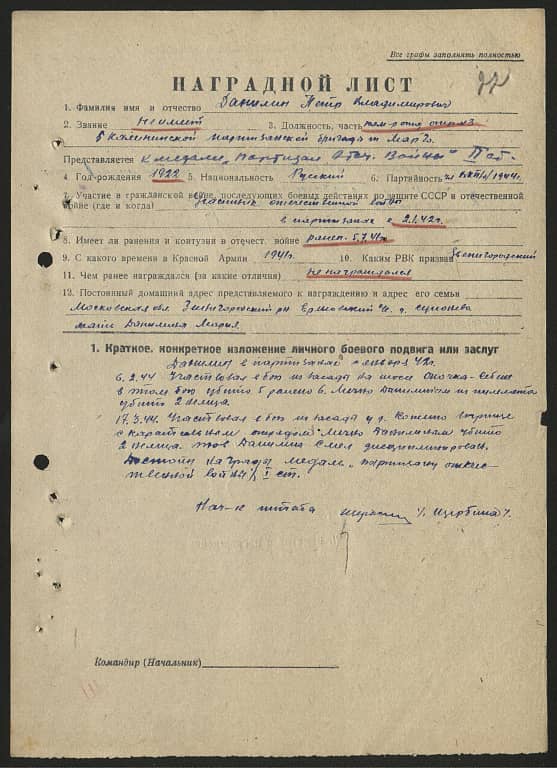 Все графы заполнять полностью
НАГРАДНОЙ ЛИСТ
1. Фамилия имя и отчество Данилин Петр Владимирович
2. Звание Не имеет 3. Должность, часть
5 Калининской партизанской бригады
Представляется к медали "Партизан Отеч. Войны" II ст.
4. Год рождения 1922 5. Национальность Русский 6. Партийность 1944г.
7. Участие в гражданской войне, последующих боевых действиях по защите СССР и отечественной
войне (где и когда) участник отечественной войны
в партизанах с 2.1.42г.
8. Имеет ли ранения и контузии в отечест. войне ранен 5.7.41г.
9. С какого времени в Красной Армии 1941г. 10. Каким РВК призван Звенигородский
11. Чем ранее награждался (за какие отличия) не награждался
12. Постоянный домашний адрес представляемого к награждению и адрес его семьи
Московская обл. Звенигородский рн. д.
мать Данилина Мария.
1. Краткое, конкретное изложение личного боевого подвига или заслуг
Данилин в партизанах с января 42г.
6.2.44 Участвовал в бою из засады на шоссе Опочка-Себеж
в этом бою убито 5 ранено 6. Лично Данилиным из пулемета
убито 2 немца.
17.3.44. Участвовал в бою из засады у д.
с карательным отрядом Лично Данилиным убито
2 немца. тов Данилин Смел дисциплинирован
Достоин награды медаль "партизану отечес-
твенной войны" II ст.
Нач-к штаба /Щербина/.
Командир (Начальник)